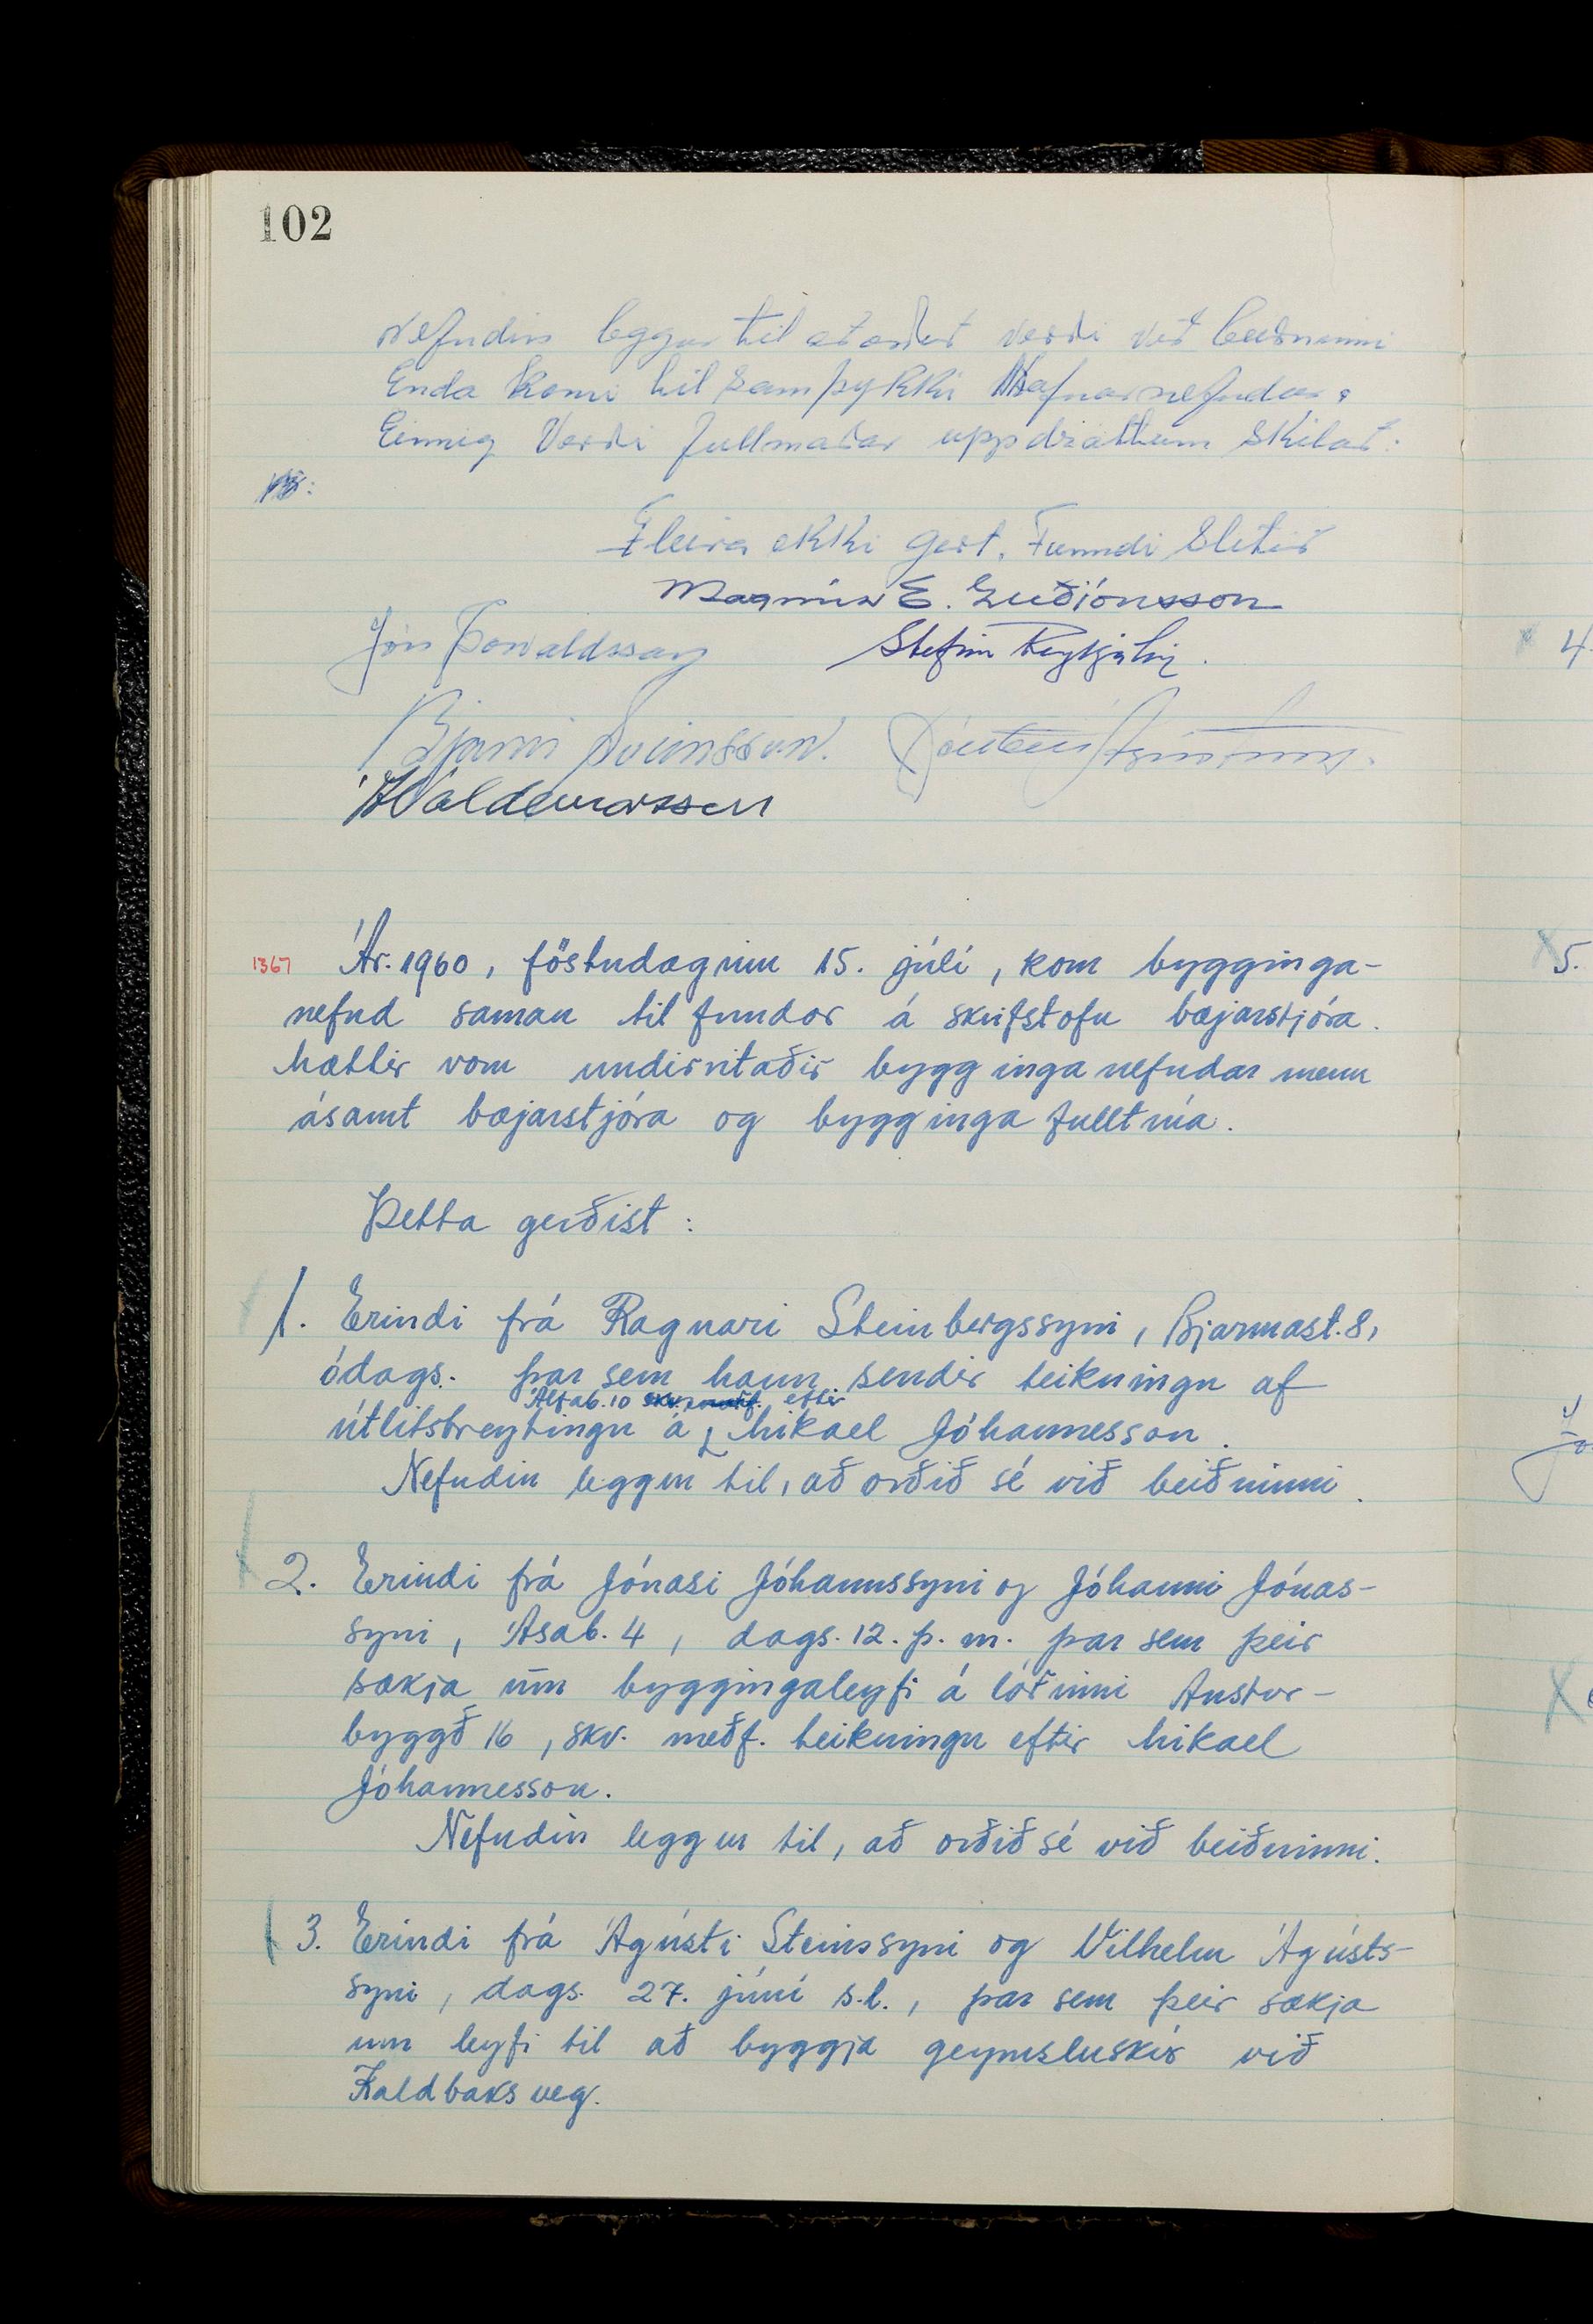 102
Nefndin leggur til að orðið verði við beiðninni
Enda komi til samþykki Hafnarnefndar.
Einnig Verði fullnaðar uppdráttum skilað.
Fleira ekki gert. Fundi Slitið
Magnús E. Guðjónsson
Jón Þorvaldsson Stefán Reykjalín.
Bjarni Sveinsson.
Waldemarsson
1367 Ár. 1960, föstudaginn 15. júlí, kom bygginga-
nefnd saman til fundar á skrifstofu bæjarstjóra.
Mættir voru undirritaðir bygginganefndar menn
ásamt bæjarstjóra og byggingafulltrúa.
Þetta gerðist:
1. Erindi frá Ragnari Steinbergssyni, Bjarmast. 8,
ódags. þar sem hann sendir teikningu af
Álfab. 10 skv. meðf. eftir
útlitsbreytingu á Mikael Jóhannesson.
Nefndin leggur til, að orðið sé við beiðninni.
2. Erindi frá Jónasi Jóhannssyni og Jóhanni Jónas-
syni, Ásab. 4, dags. 12. þ. m. þar sem þeir
sækja um byggingaleyfi á lóðinni Austur-
byggð 16, skv. meðf. teikningu eftir Mikael
Jóhannesson.
Nefndin leggur til, að orðið sé við beiðninni.
3. Erindi frá Ágústi Steinssyni og Vilhelm Ágústs-
syni, dags. 27. júní s.l., þar sem þeir sækja
um leyfi til að byggja geymsluskúr við
Kaldbaksveg.
4.
5.